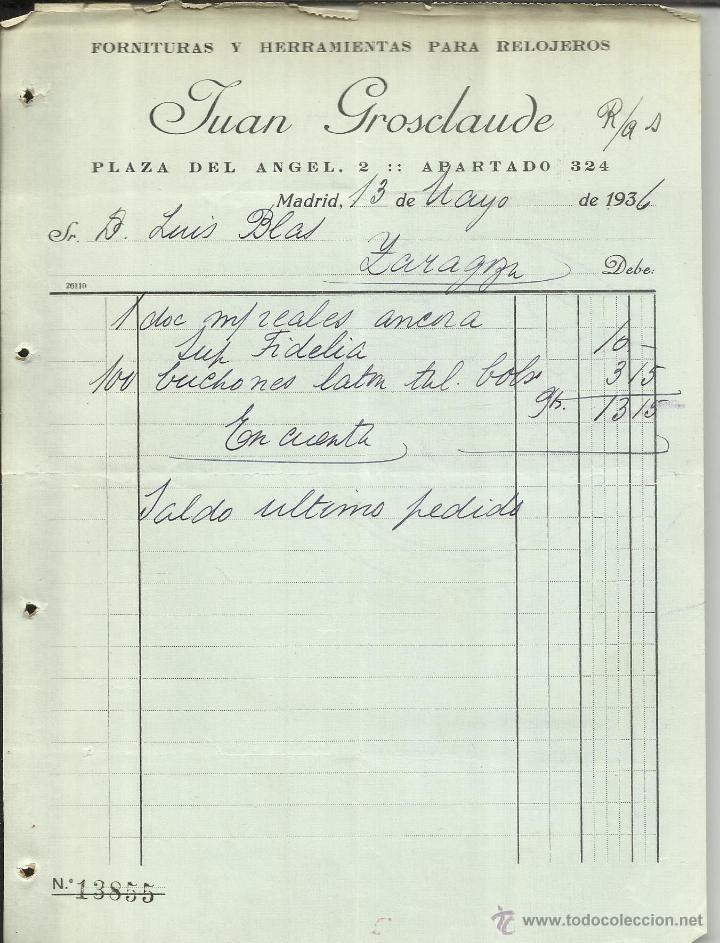 FORNITURAS Y HERRAMIENTAS PARA RELOJEROS
Juan Grosclaude
PLAZA DEL ANGEL, 2 :: APARTADO 324
Madrid, 13 de Mayo de 1936
Sr. D. Luis Blas
Zaragoza Debe:
26110
1 doc m/reales ancora
Sup Fidelia 10 -
100 buchones laton 3 15
13 15
En cuenta
Saldo ultimo pedido
N.º 13855
www.todocoleccion.net